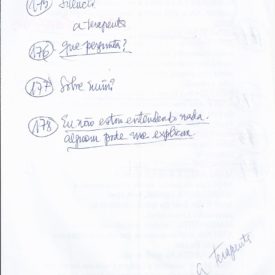 175 Silêncio
a terapeuta
176 Que pergunta?
177 Sobre mim?
178 Eu não estou entendendo nada.
alguém pode me explicar.
a terapeuta